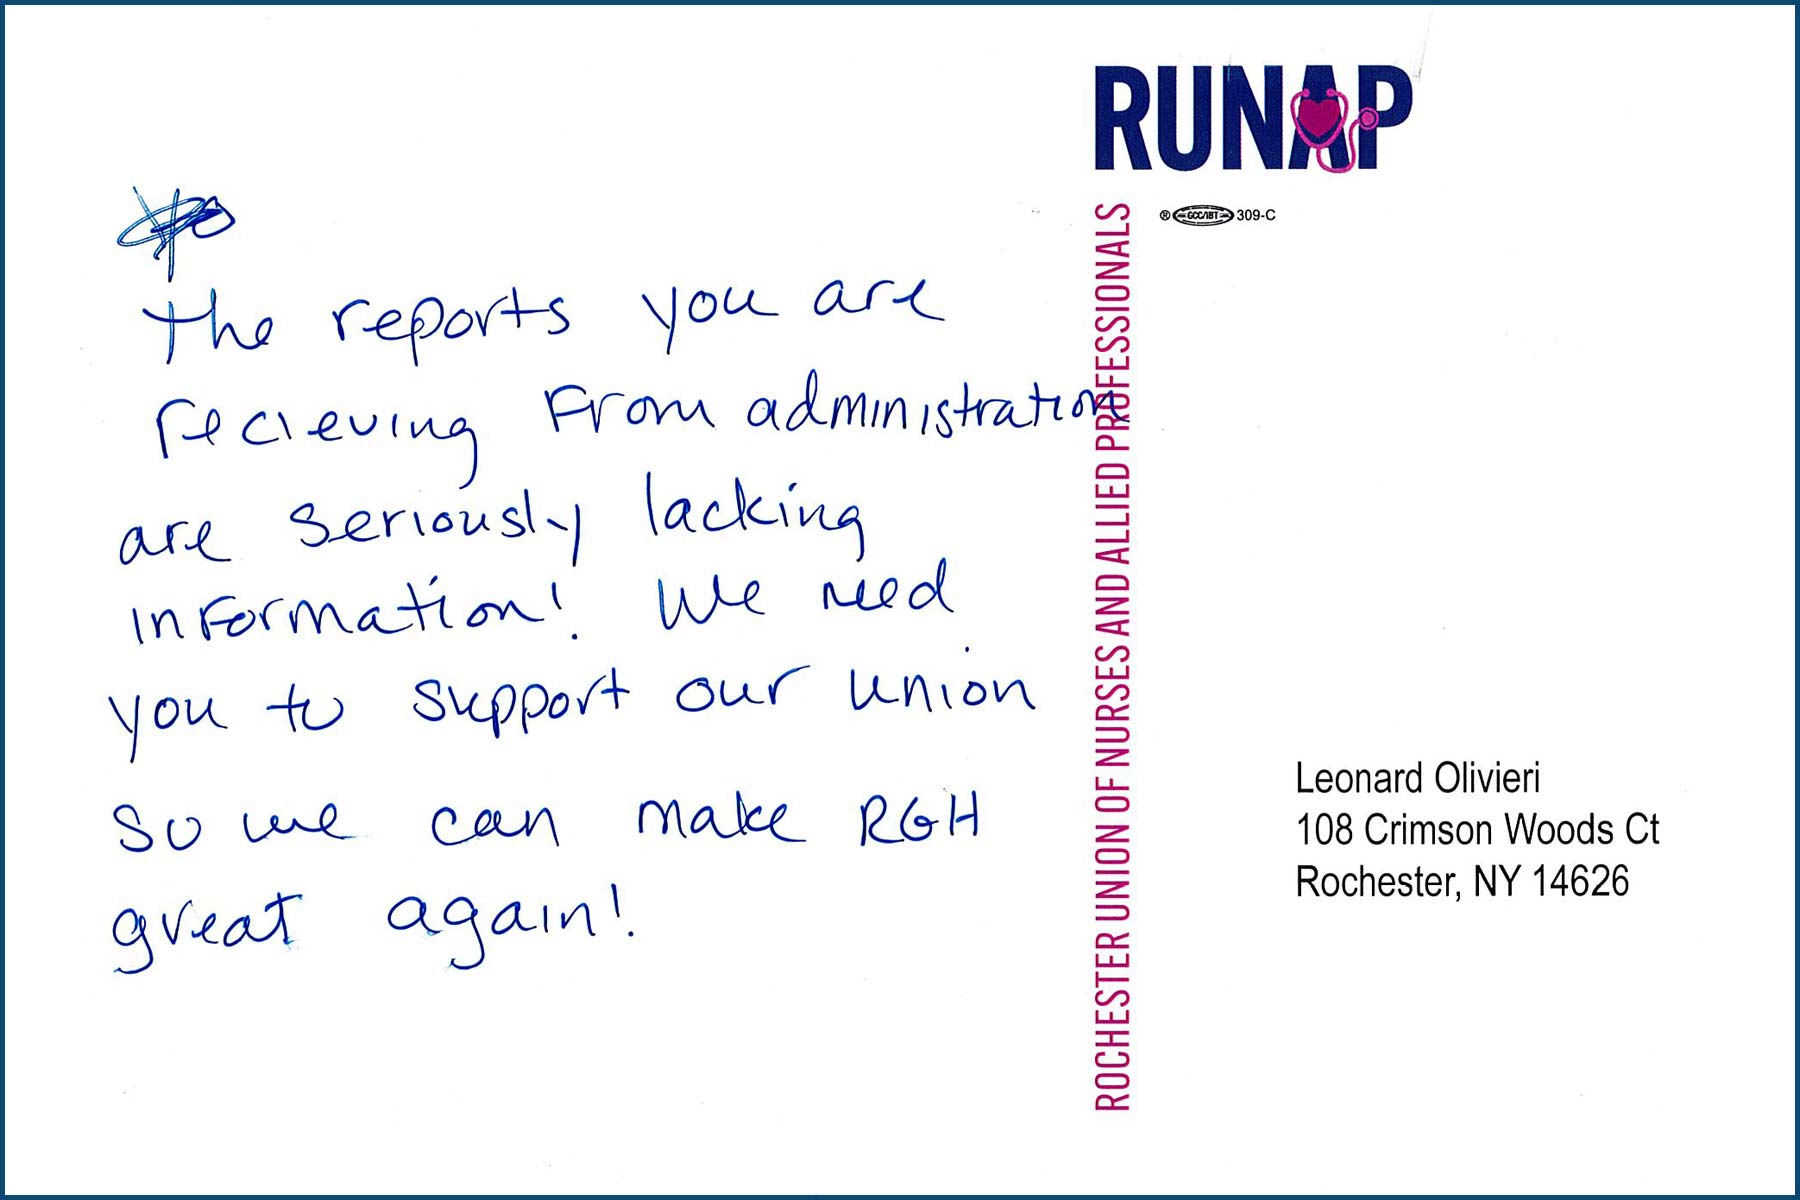 The reports you are
recieving From administration
are seriously lacking
information! We need
you to support our union
So we can make RGH
great again!
RUNAP
® GCC/IBT 309-C
ROCHESTER UNION OF NURSES AND ALLIED PROFESSIONALS
Leonard Olivieri
108 Crimson Woods Ct
Rochester, NY 14626